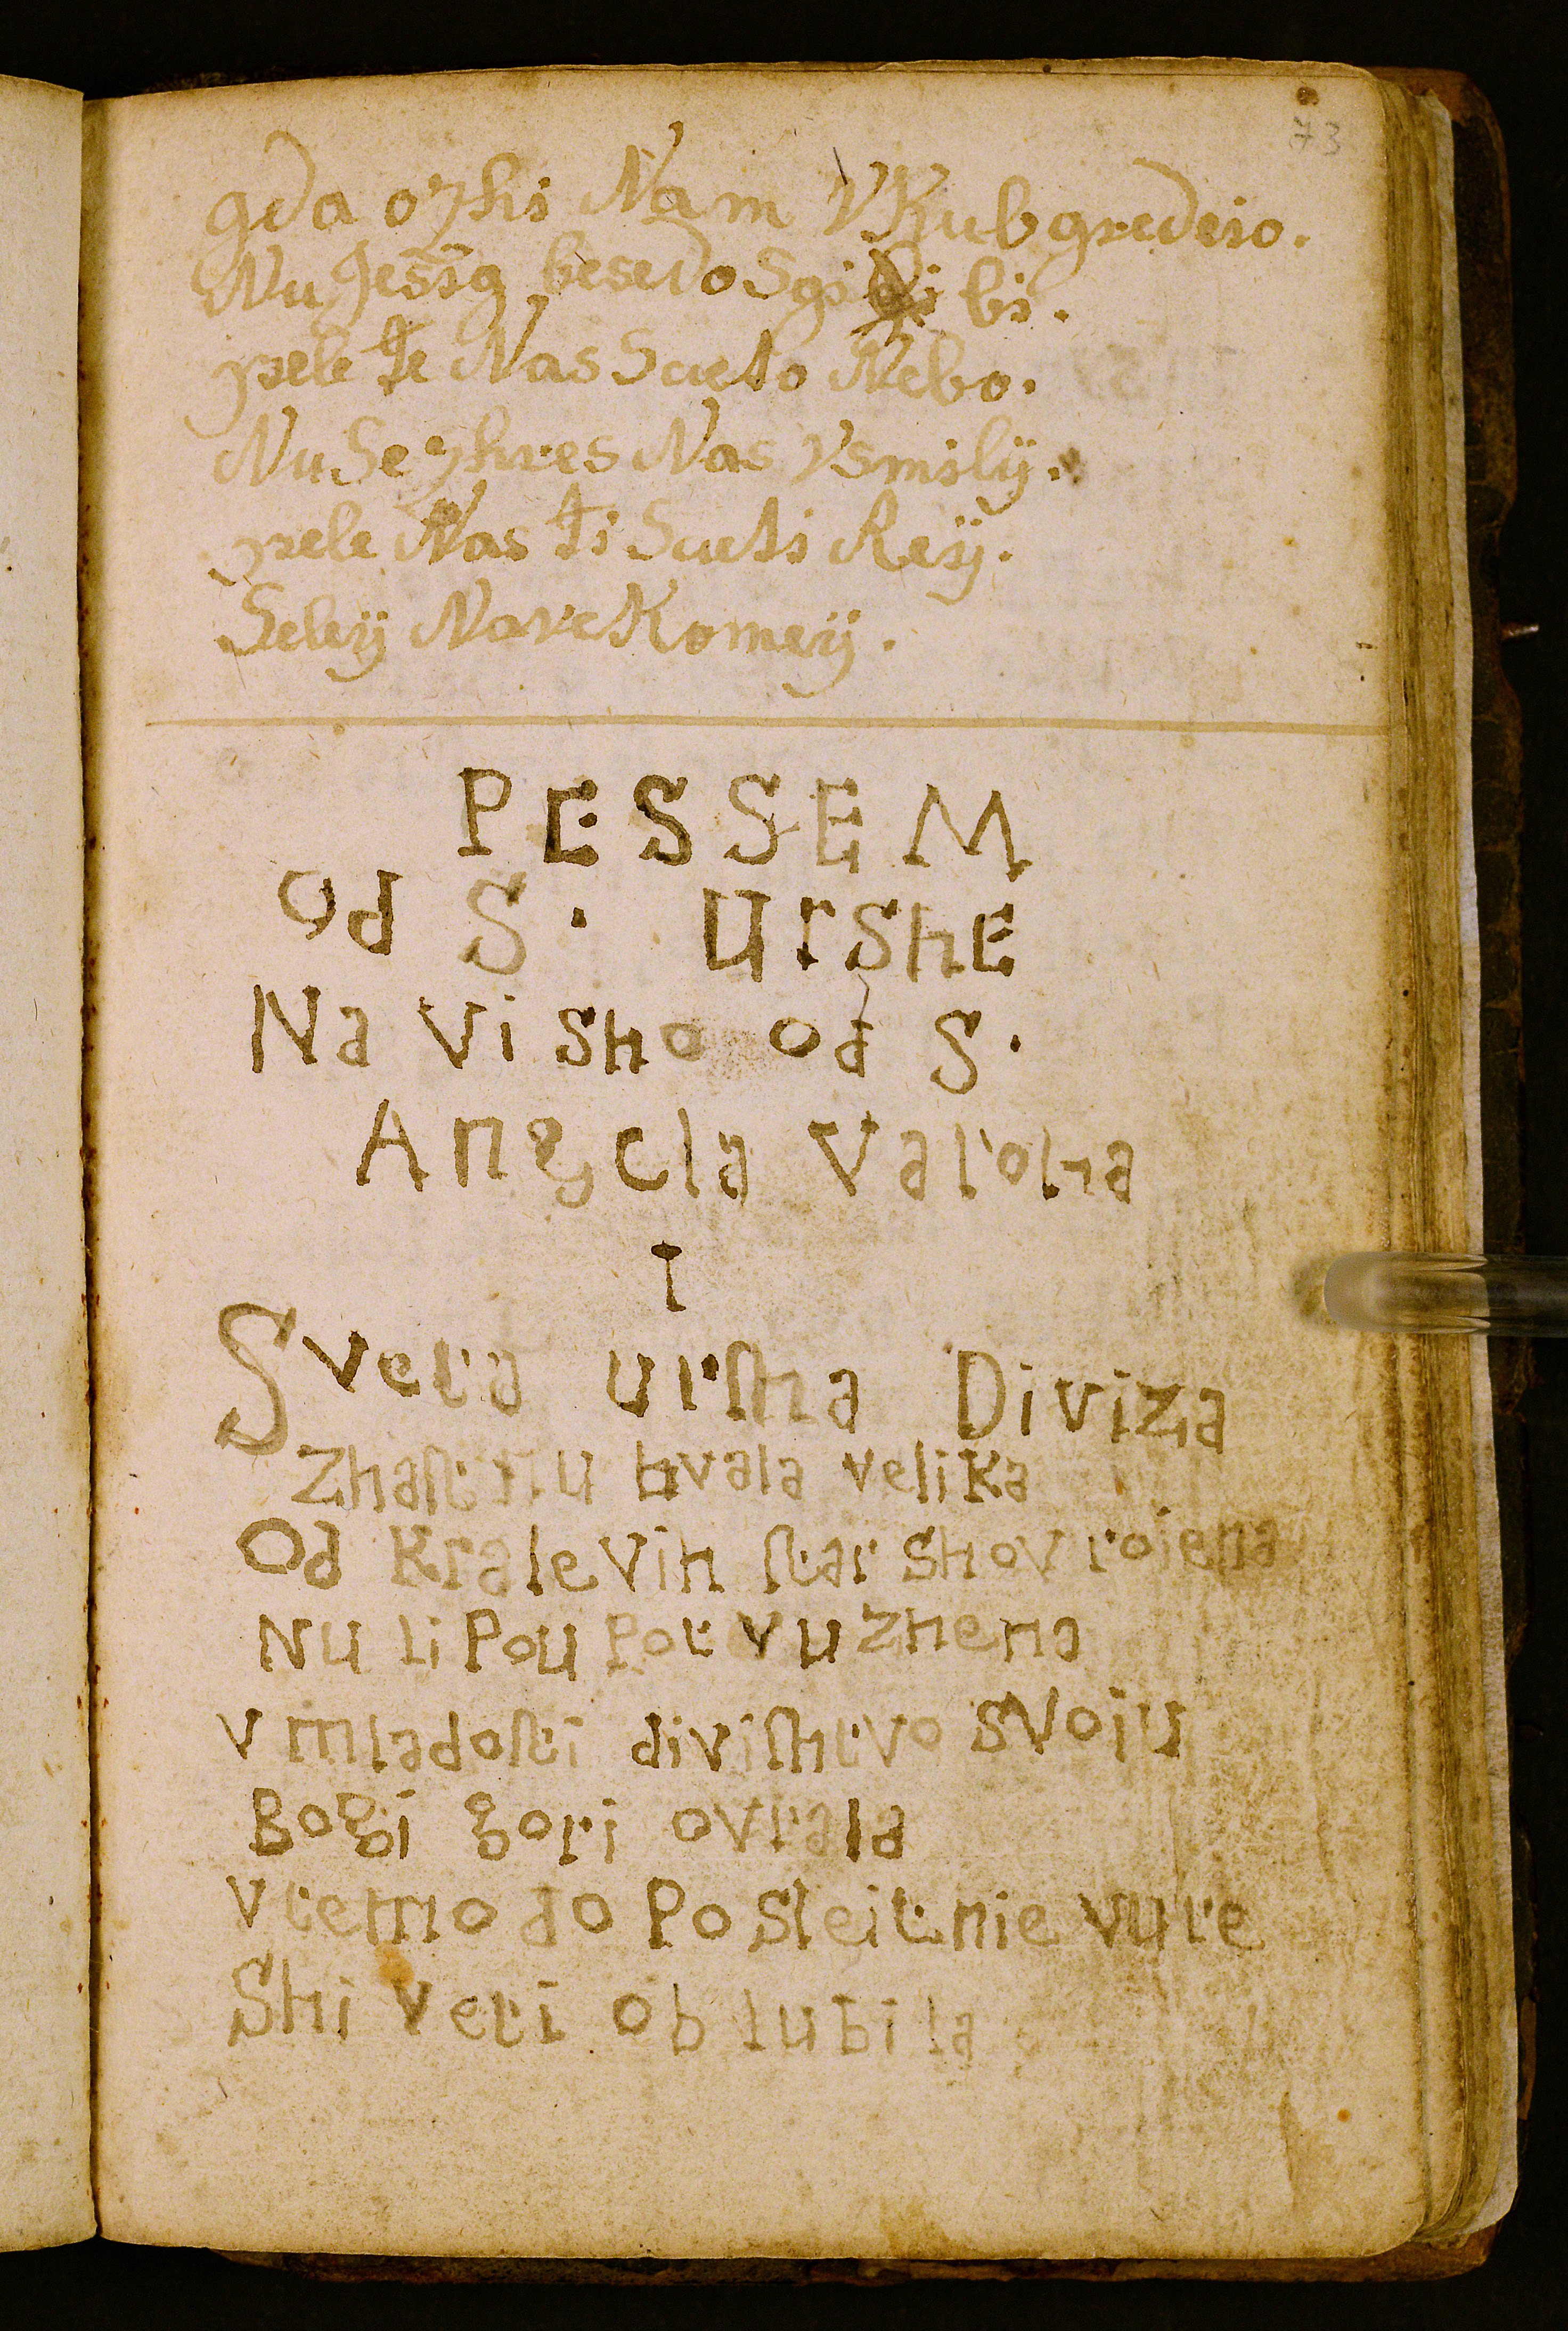 73
gda ozhi Nam VKub gredeio.
Nu Jessig besedo Sgi bi.
pele te Nas Sueto Nebo.
Nu Se zhres Nas Vsmily.
pele Nas ti Sueti Rey.
Seley Nav Komey.
PESSEM
Od S. UrshE
Na Visho od S.
Angela Varoha
I
Sveta urſha Diviza
Zhaſtitu hvala velika
Od kralevih ſtarshov roiena
Nu li Pou Pot vuzhena
v mladoſti diviſhtvo svoiu
Bogi gori ovrala
v temo do Posleitnie vure
Shi veti oblubila